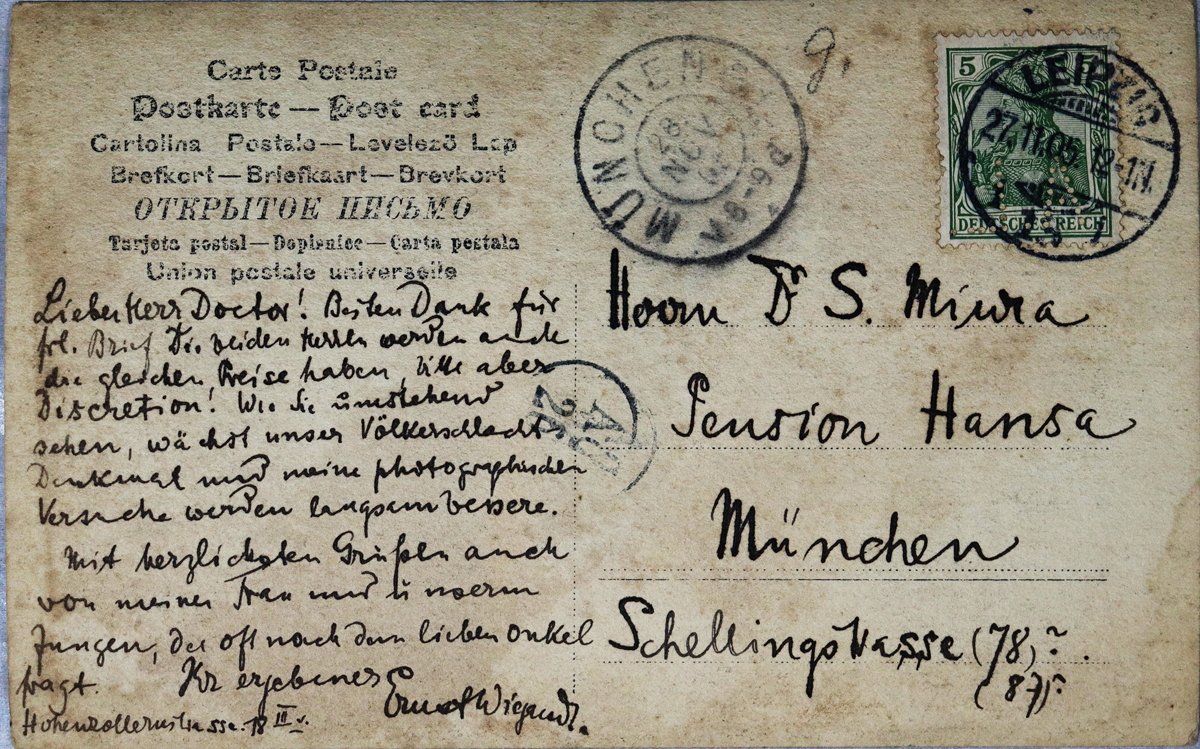 Carte Postale
Postkarte — Post card
Cartolina Postale — Levelező Lap
Brefkort — Briefkaart — Brevkort
ОТКРЫТОЕ ПИСЬМО
Tarjeta postal — Dopisnice — Carta postala
Union postale universelle
g.
MÜNCHEN
28 NOV
8-9
5 5
DEUTSCHES REICH
LEIPZIG
27.11.05. 12-1N.
Lieber Herr Doctor! Besten Dank für
frl. Brief Die beiden Herren werden auch
die gleichen Preise haben, bitte aber
Discretion! Wie Sie umstehend
sehen, wächst unser Völkerschlacht
Denkmal und meine photographischen
Versuche werden langsam bessere.
Mit herzlichsten Grüßen auch
von meiner Frau und unserm
Jungen, der oft nach dem lieben Onkel
fragt. Ihr ergebenes
Ernst Wiegandt.
Hohenzollernstrasse 18 III v.
Herrn Dr S. Miura
Pension Hansa
München
Schellingstrasse (78)?.
(87)?